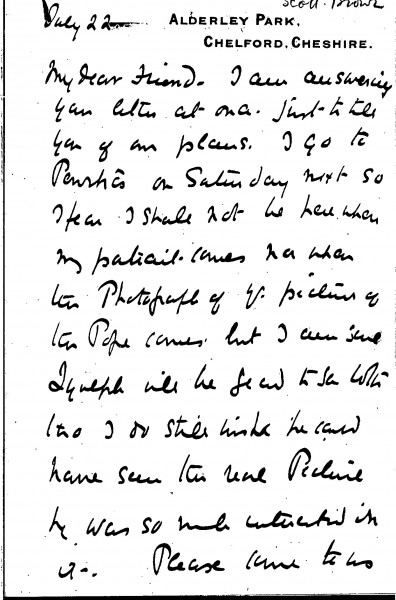 Scott-Brown
July 22
ALDERLEY PARK,
CHELFORD, CHESHIRE.
My dear Friend. I am answering
your letter at once. Just to tell
you of our plans. I go to
Penrhôs on Saturday next so
I fear I shall not be here when
my portrait comes nor when
the Photograph of yr. picture of
the Pope comes. but I am sure
will be glad to see both
tho I do still wish he could
have seen the real Picture
he was so much interested in
it-. Please come to us